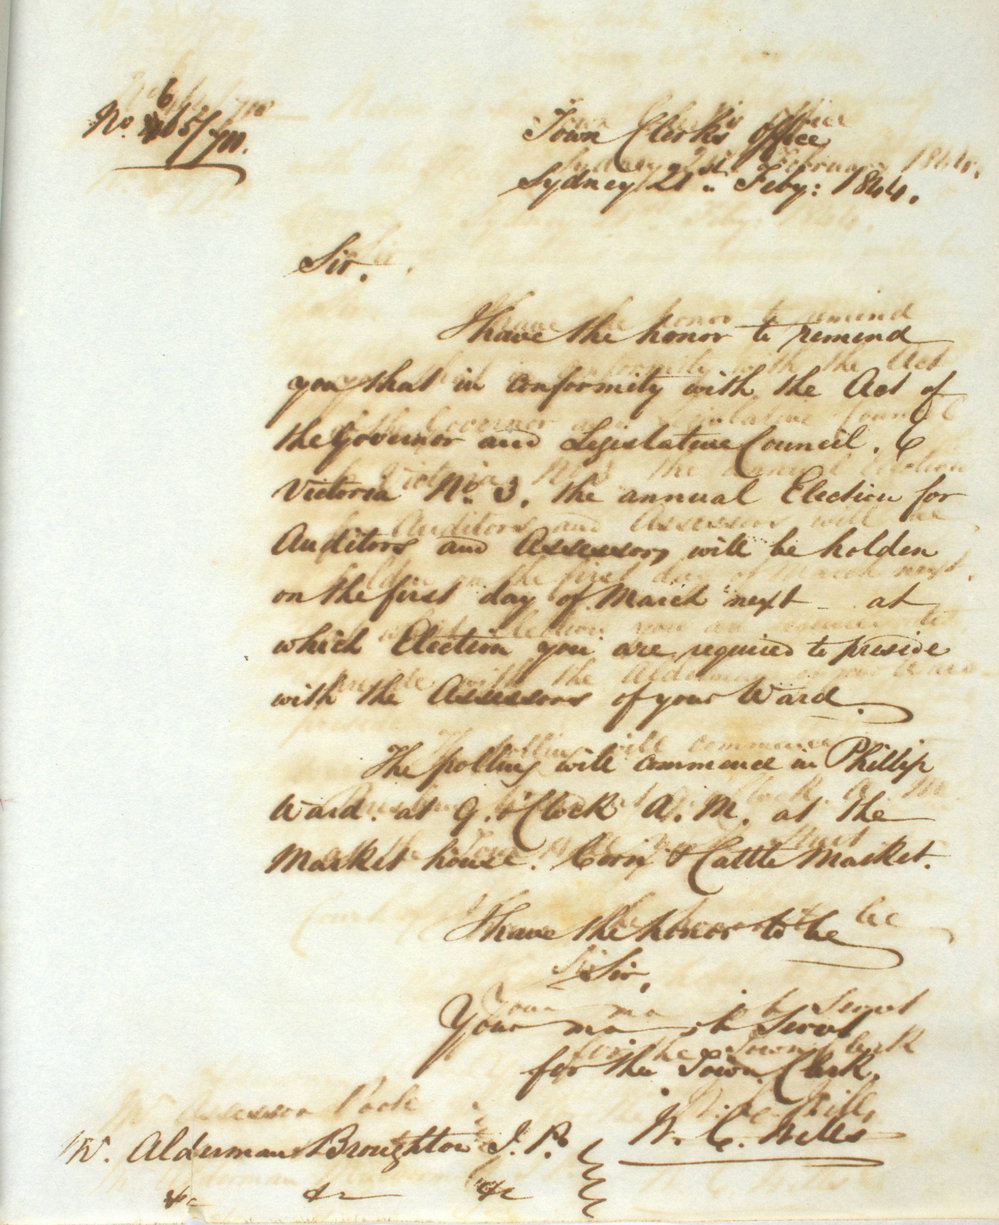 Town Clerk's Office
Sydney 21st Feby: 1844.
Sir.
I have the honor to remind
you that in conformity with the Act of
the Governor and Legislative Council. 6
Victoria No. 3. the annual Election for
Auditors and Assessors, will be holden
on the first day of March next at
which Election you are required to preside
with the Assessors of your Ward.
The polling will commence in Phillip
Ward. at 9. o'Clock A.M. at the
Market house. Corn & Cattle Market.
I have the honor to be
Sir,
Your mo ob Servt
for the Town Clerk.
W. C. Wills
Mr. Alderman Broughton J.P.
&c &c &c